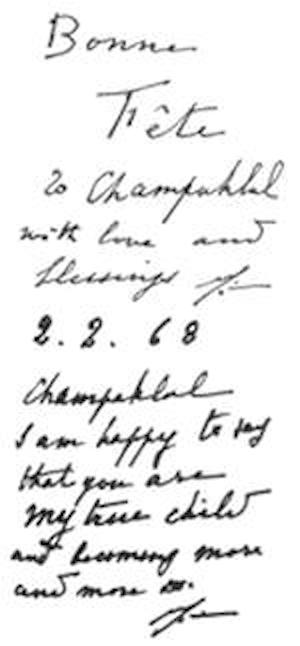 Bonne
Fête
to Champaklal
with love and
blessings
2.2.68
Champaklal
I am happy to say
that you are
my true child
and becoming more
and more so.